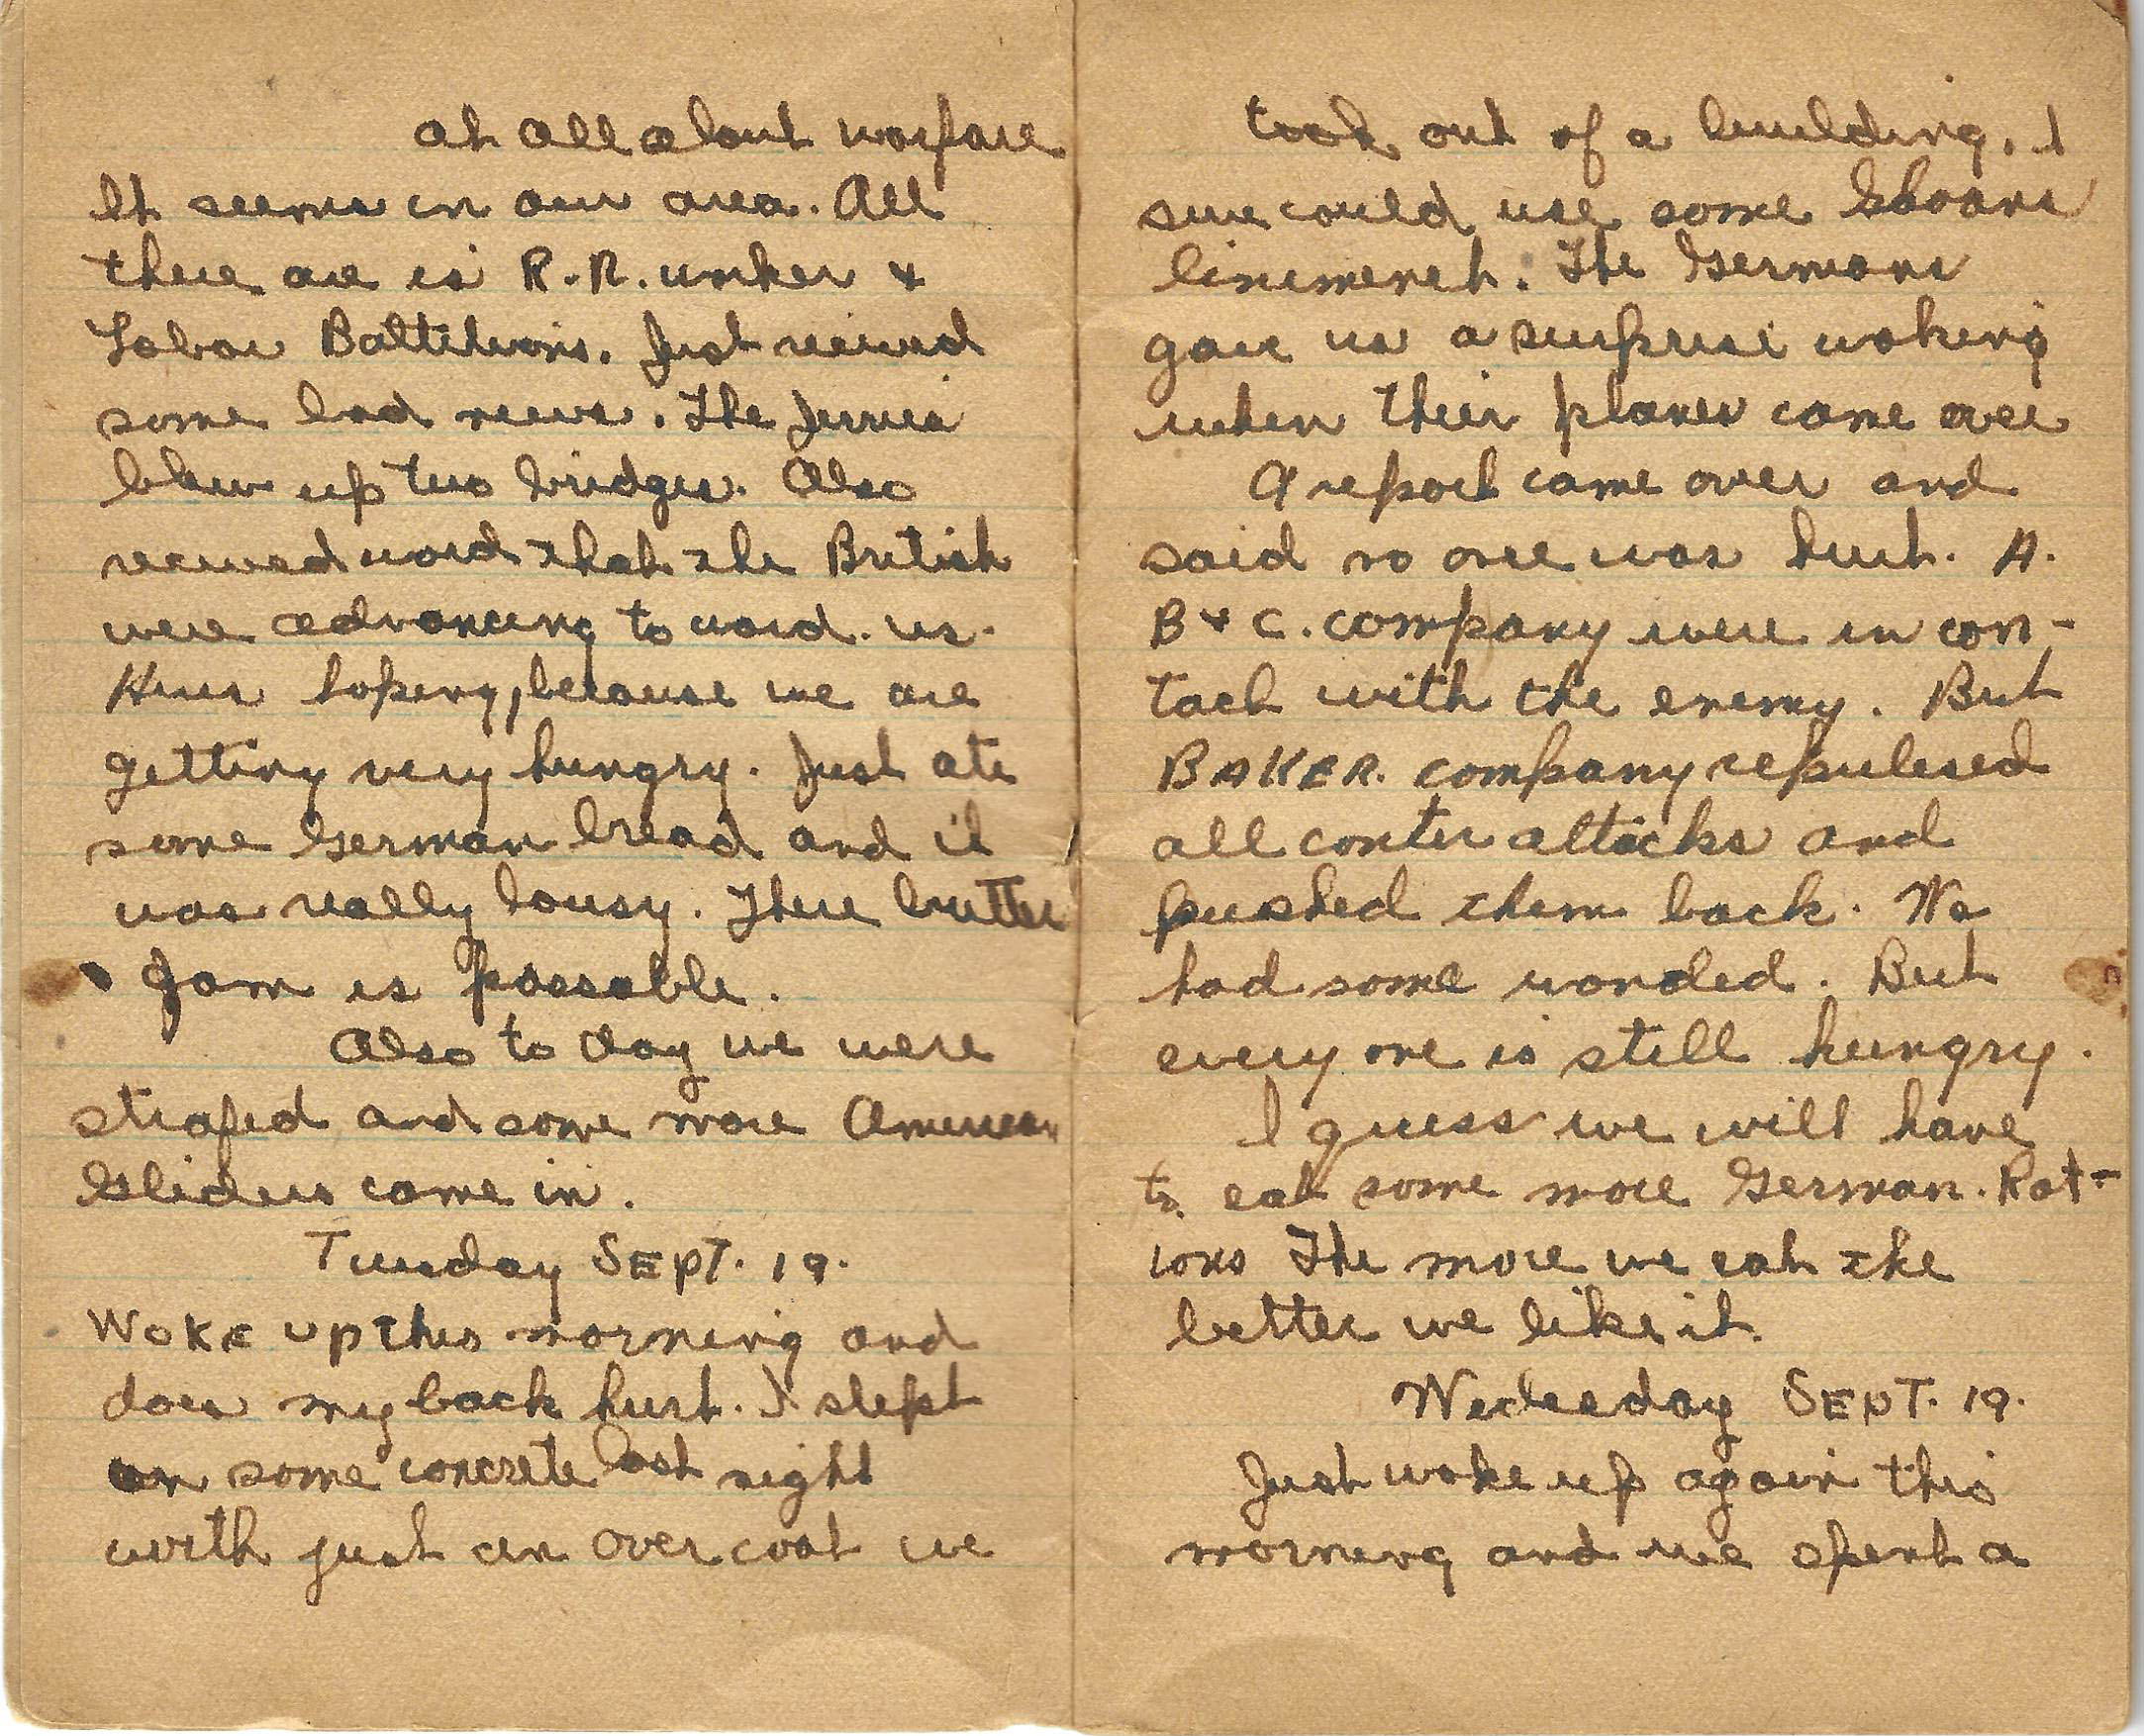 at all about warfare
It seems in our area. All
there are is R.R. worker &
Labor Battilions. Just recived
some bad news. The Jerries
blew up two bridges. Also
recived word that the British
were advancing to ward. us.
Heres hoping, because we are
getting very hungry. Just ate
some German bread and it
was really lousy. There butter
Jam is passable.
Also to day we were
strafed and some more American
Gliders come in.
Tuesday SEPT. 19.
WOKE up this morning and
does my back hurt. I slept
on some concrete last night
with just an over coat we
took out of a building. I
sure could use some Sloans
liniment. The Germans
gave us a surprise waking
when their planes came over
A report came over and
said no one was hurt. A.
B & C. company were in con-
tact with the enemy. But
BAKER. company repulesed
all conter attacks and
pushed them back. We
had some wonded. But
every one is still hungry.
I guess we will have
to eat some more German. Rat-
ions The more we eat the
better we like it.
Wedesday SEPT. 19.
Just woke up again this
morning and we spent a